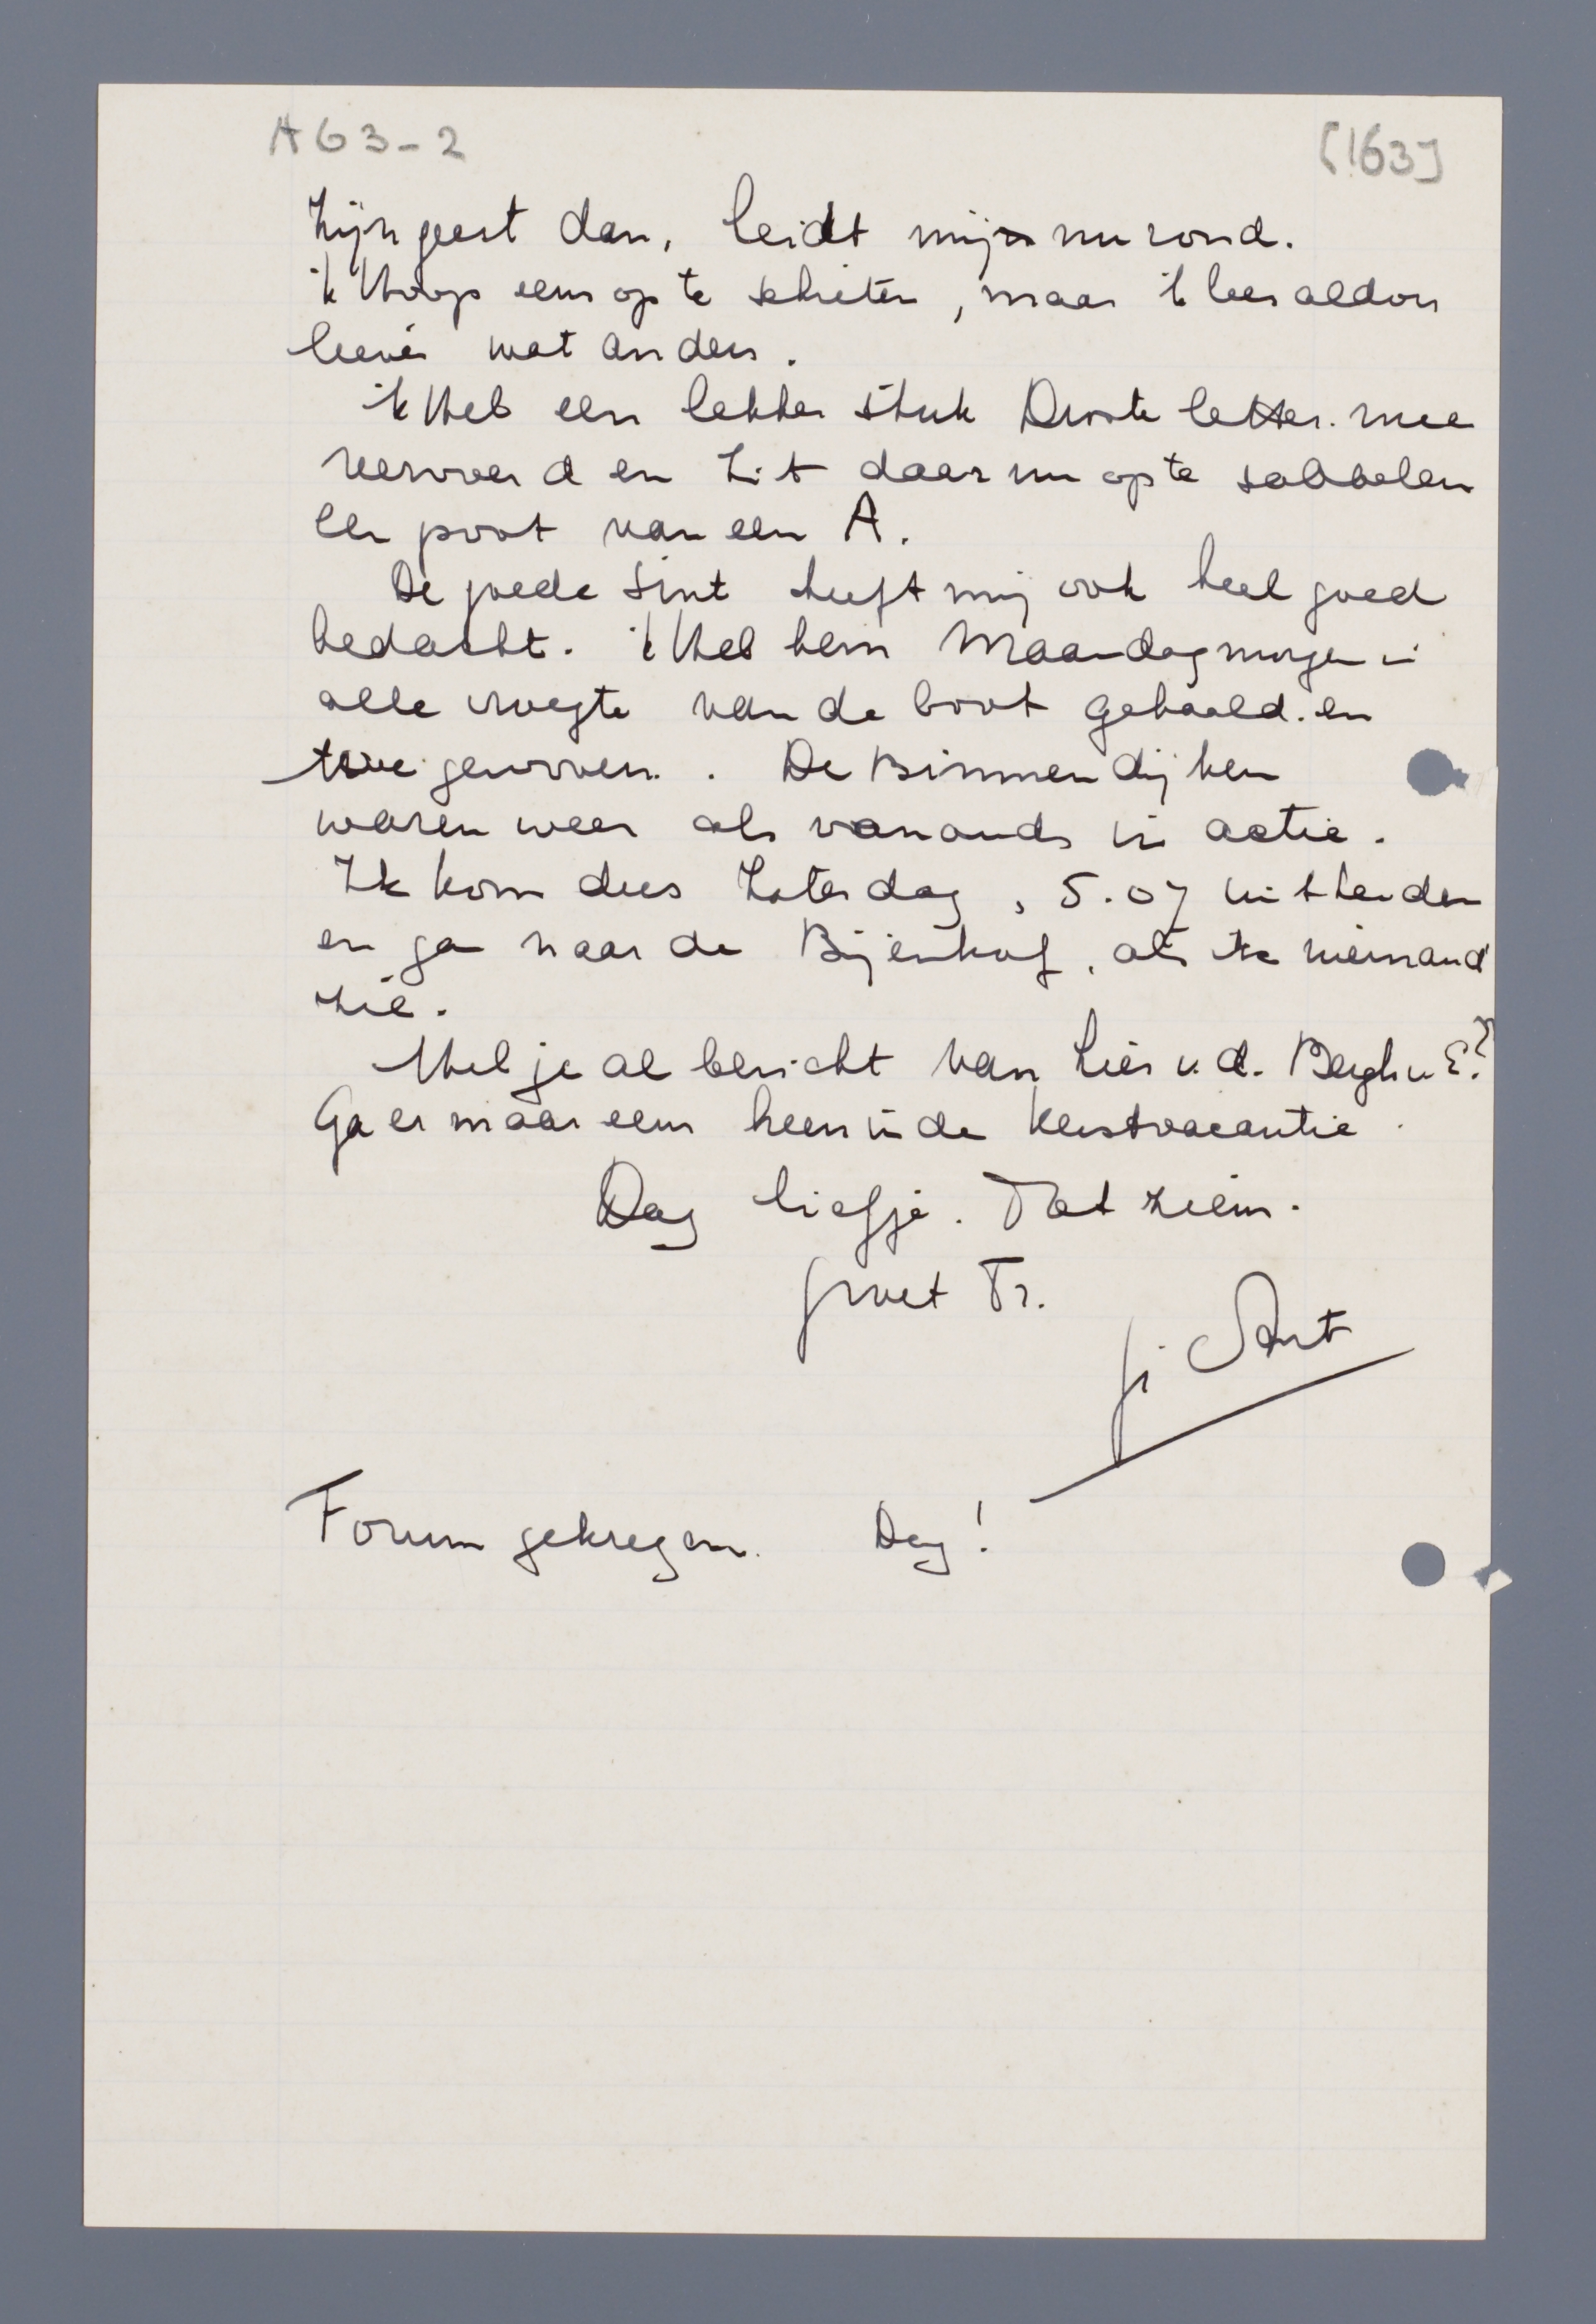 A63-2
[163]
Zijn geest dan, leidt mij nu rond.
ik Hoop eens op te schieten, maar ik lees aldoor
liever wat anders.
ik Heb een lekker stuk Droste letter mee
veroverd en zit daar nu op te sabbelen
een poot van een A.
De goede Sint heeft mij ook heel goed
bedacht. ik Heb hem Maandagmorgen in
alle vroegte van de boot gehaald en
toegewoven. De Binnendijken
waren weer als vanouds in actie.
Ik kom dus Zaterdag, 5.07 uit Leiden
en ga naar de Bijenkorf, als ik niemand
zie.
Heb je al bericht van Lies v.d. Bergh v E?
Ga er maar eens heen in de Kerstvacantie.
Dag liefje. Tot ziens.
groet Tr.
je Aart
Forum gekregen. Dag!